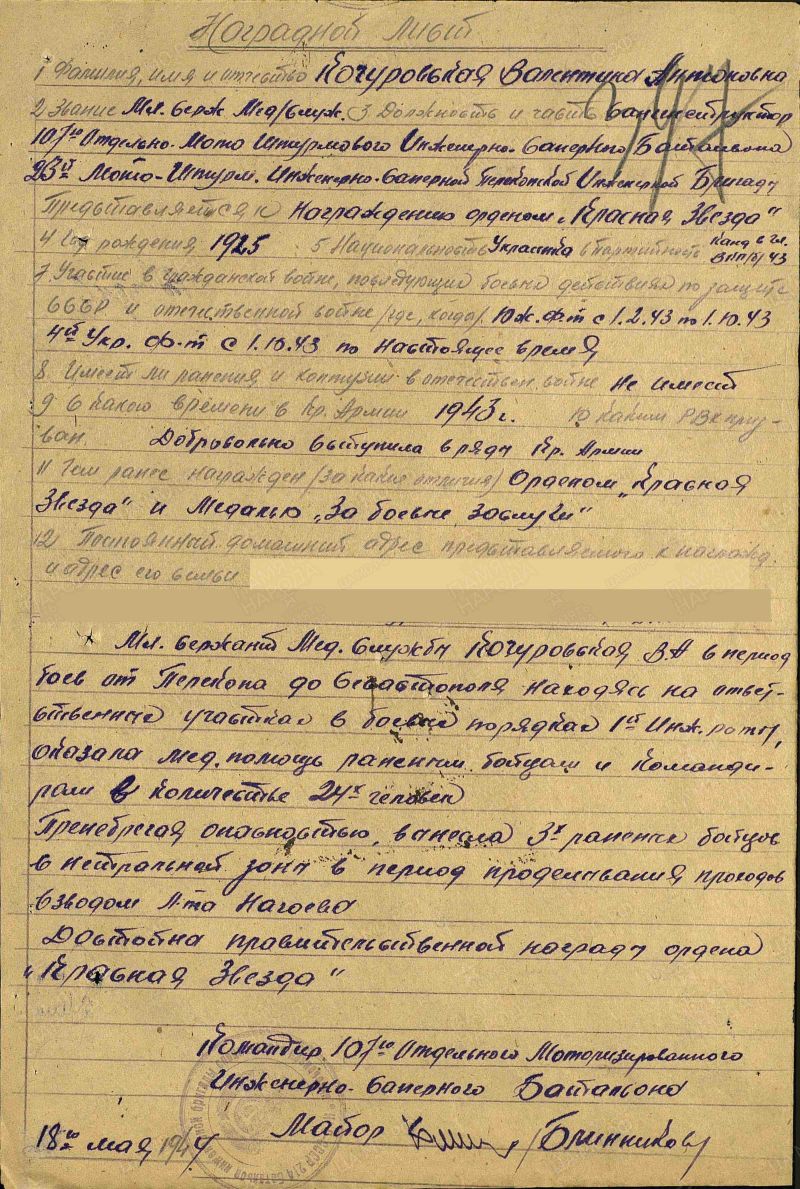 Наградной лист
1 Фамилия, имя и отчество Кочуровская Валентина Антоновна
2 Звание Мл. Серж. Мед/Служ. 3 Должность и часть Санинструктор
107го Отдельно-Мото Штурмового Инжерно-Саперного Батальона
23й Мото-Штурм. Инженерно-Саперной Перекопской Инженерной Бригады
Представляется к Награждению орденом „Красная Звезда"
4 Год рождения 1925 5 Национальность Украинка 6 Партийность Канд в чл. ВКП/б/ 43
7 Участие в гражданской войне, последующих боевых действиях по защите
СССР и отечественной войне /где, когда/. Юж. ф-т с 1.2.43 по 1.10.43
4й Укр. ф-т с 1.10.43 по настоящее время
8 Имеет ли ранения и контузии в отечествен. войне Не имеет
9 С какого времени в Кр. Армии 1943 г. 10 Каким РВК приз-
ван. Добровольно вступила в ряды Кр. Армии
11 Чем ранее награжден /за какие отличия/ Орденом „Красная
Звезда" и Медалью „За боевые заслуги"
12 Постоянный домашний адрес представляемого к награжд.
и адрес его семьи
Мл. Сержант Мед. Службы Кочуровская В.А в период
боев от Перекопа до Севастополя находясь на ответ-
ственных участках в боевых порядках 1й Инж. роты,
оказала мед. помощь раненым бойцам и командирам
рам в количестве 24х человек
Пренебрегая опасностью, вынесла 3х раненых бойцов
в нейтральной зоны в период проделывания проходов
взводом Л-та Нагоева
Достойна правительственной награды ордена
„Красная Звезда"
Командир 107го Отдельного Моторизированного
Инженерно-Саперного Батальона
18го мая 1944 Майор /Блинников/